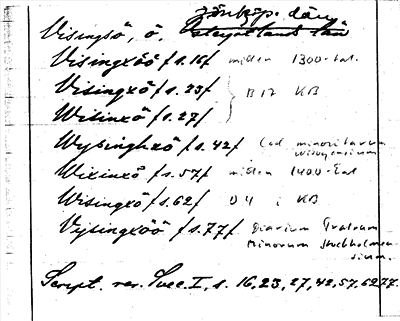 Jönköp. län
Visingsö, ö, Östergötlands län
Visingxöö f s. 16 f midten 1300-tal.
Visingxö f s. 23 f
B 17 KB
Wisinxö f s. 27 f
Wysinghxö f s. 42 f Cod. minoritarum Wisbyensium
Wixinxö f s. 57 f midten 1400-tal
Wisingxö f s. 62 f D 4 i KB
Vijsingxöö f s. 77 f Diarium Fratrum Minorum Stockholmensium.
Script. rer. Svec. I, s. 16, 23, 27, 42, 57, 62, 77.